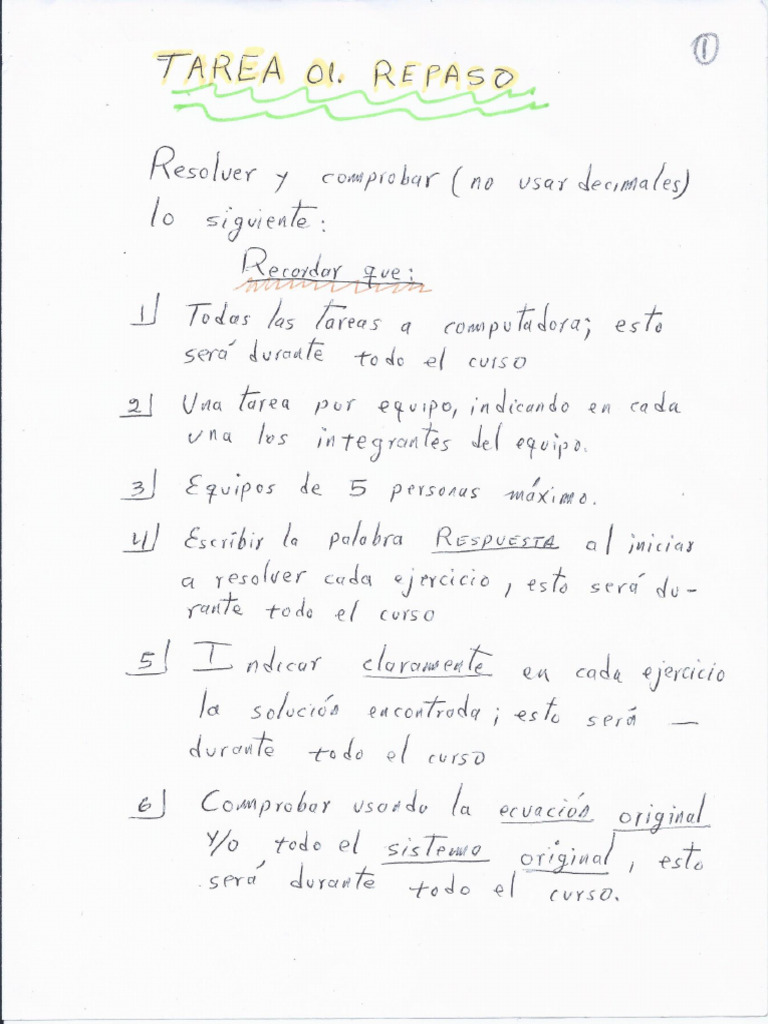 ①
TAREA 01. REPASO
Resolver y comprobar (no usar decimales)
lo siguiente:
Recordar que:
1 Todas las tareas a computadora; esto
será durante todo el curso
2 Una tarea por equipo, indicando en cada
una los integrantes del equipo.
3 Equipos de 5 personas máximo.
4 Escribir la palabra RESPUESTA al iniciar
a resolver cada ejercicio, esto será du-
rante todo el curso
5 Indicar claramente en cada ejercicio
la solución encontrada; esto será —
durante todo el curso
6 Comprobar usando la ecuación original
y/o todo el sistema original, esto
será durante todo el curso.